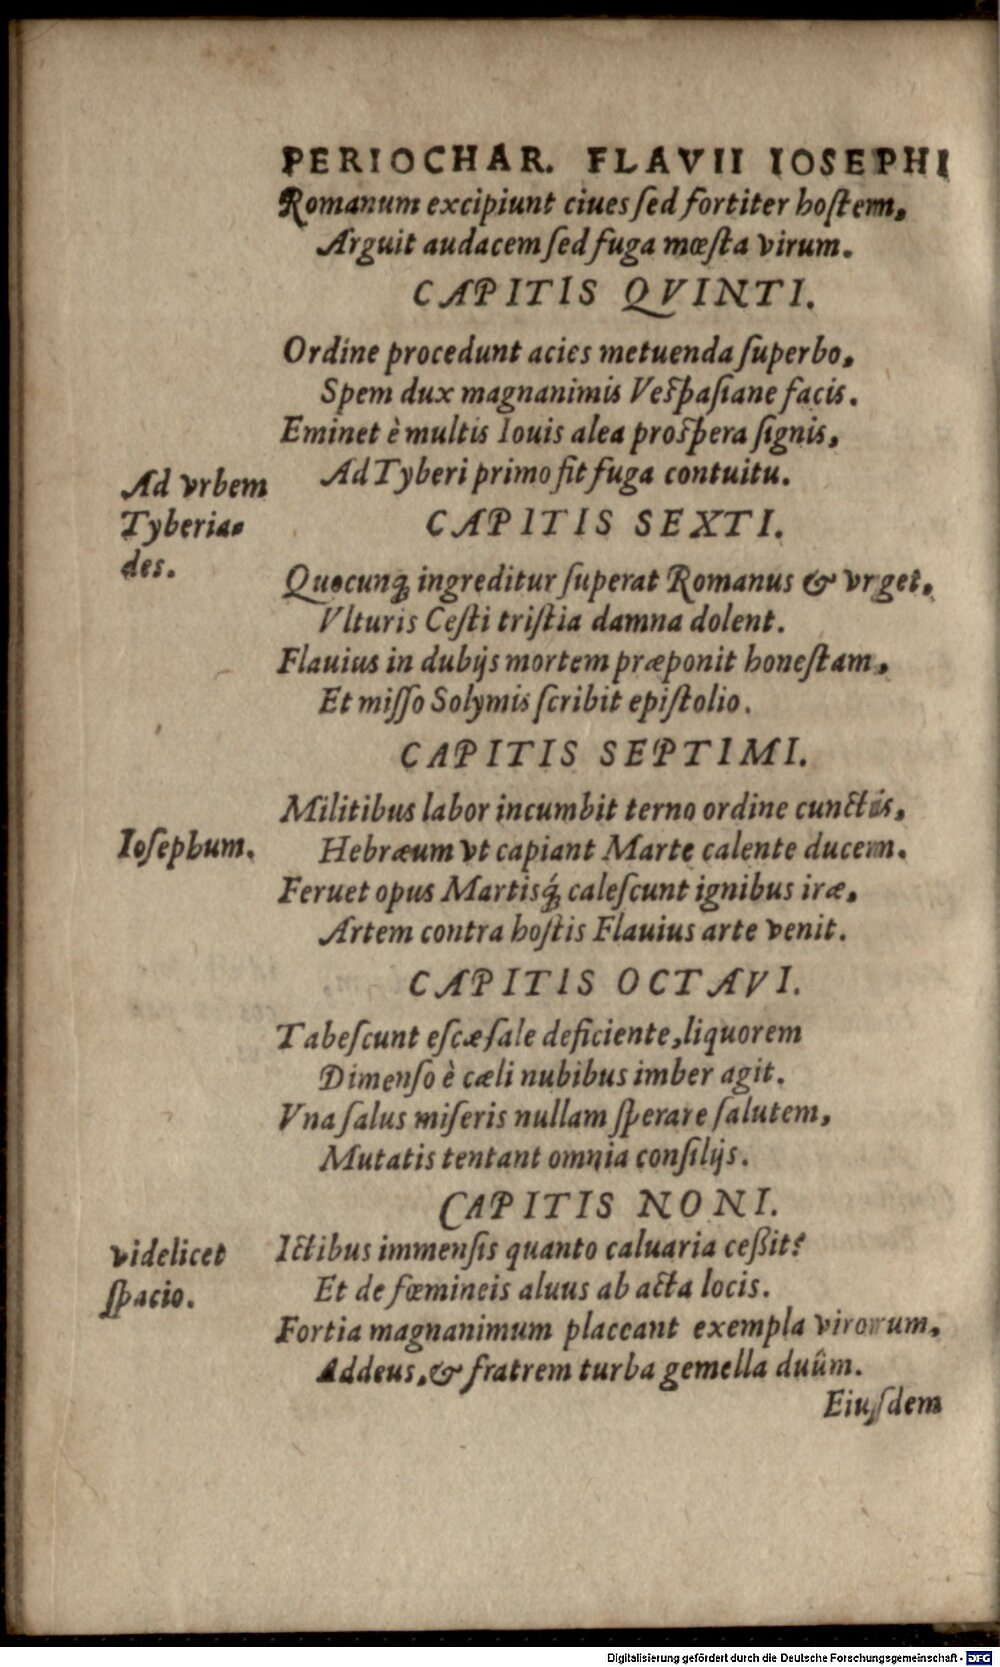 PERIOCHAR. FLAVII IOSEPHI
Romanum excipiunt ciues sed fortiter hoſtem,
Arguit audacem ſed fuga mœſta virum.
CAPITIS QVINTI.
Ordine procedunt acies metuenda ſuperbo,
Spem dux magnanimis Veſpaſiane facis.
Eminet è multis Iouis alea proſpera ſignis,
Ad Tyberi primo fit fuga contuitu.
Ad vrbem
Tyberia-
des.
CAPITIS SEXTI.
Quocunq́ ingreditur ſuperat Romanus & vrget,
Vlturis Ceſti triſtia damna dolent.
Flauius in dubijs mortem præponit honeſtam,
Et miſſo Solymis ſcribit epiſtolio.
CAPITIS SEPTIMI.
Militibus labor incumbit terno ordine cunctis,
Hebræum vt capiant Marte calente ducem.
Ioſephum.
Feruet opus Martisq́ caleſcunt ignibus iræ,
Artem contra hoſtis Flauius arte venit.
CAPITIS OCTAVI.
Tabeſcunt eſcæ ſale deficiente, liquorem
Dimenſo è cæli nubibus imber agit.
Vna ſalus miſeris nullam ſperare ſalutem,
Mutatis tentant omnia conſilijs.
CAPITIS NONI.
Ictibus immenſis quanto caluaria ceßit?
videlicet
ſpacio.
Et de fœmineis aluus ab acta locis.
Fortia magnanimum placeant exempla virorum,
Addeus, & fratrem turba gemella duûm.
Eiuſdem
Digitalisierung gefördert durch die Deutsche Forschungsgemeinschaft - DFG